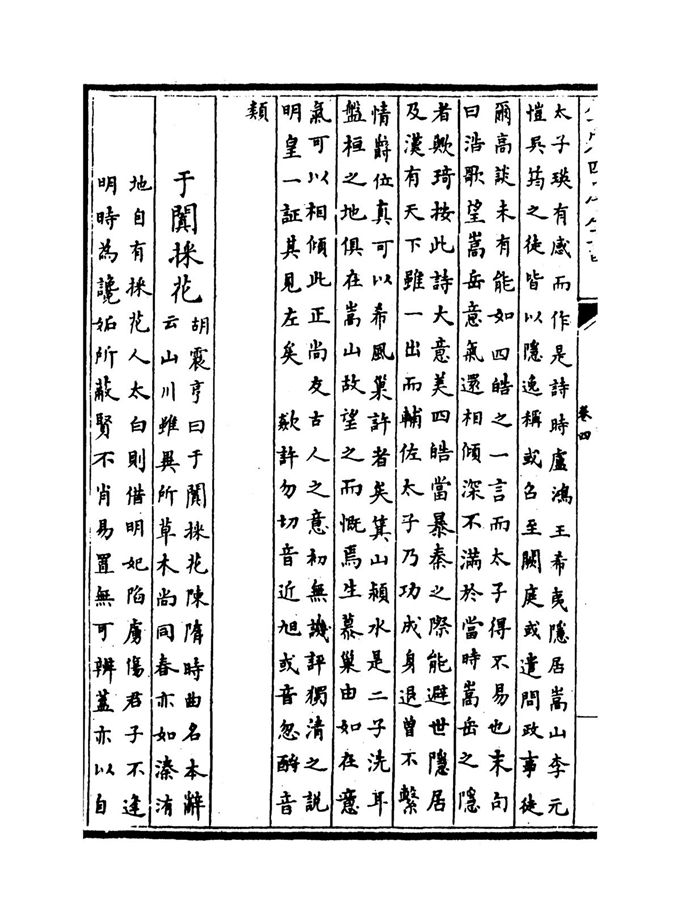 太子瑛有感而作是詩時盧鴻王希夷隱居嵩山李元
愷吳筠之徒皆以隱逸稱或召至闕庭或遣問政事徒
爾高談未有能如四皓之一言而太子得不易也末句
曰浩歌望嵩岳意氣還相傾深不滿於當時嵩岳之隱
者歟琦按此詩大意美四皓當暴秦之際能避世隱居
及漢有天下雖一出而輔佐太子乃功成身退曾不繫
情爵位真可以希風巢許者矣箕山潁水是二子洗耳
盤桓之地俱在嵩山故望之而慨焉生慕巢由如在意
氣可以相傾此正尚友古人之意初無譏評獨清之說
明皇一証其見左矣 歘許勿切音近旭或音忽酹音
類
于闐採花
胡震亨曰于闐採花陳隋時曲名本辭
云山川雖異所草木尚同春亦如溱洧
地自有採花人太白則借明妃陷虜傷君子不逢
明時為讒妬所蔽賢不肖易置無可辨蓋亦以自
卷四